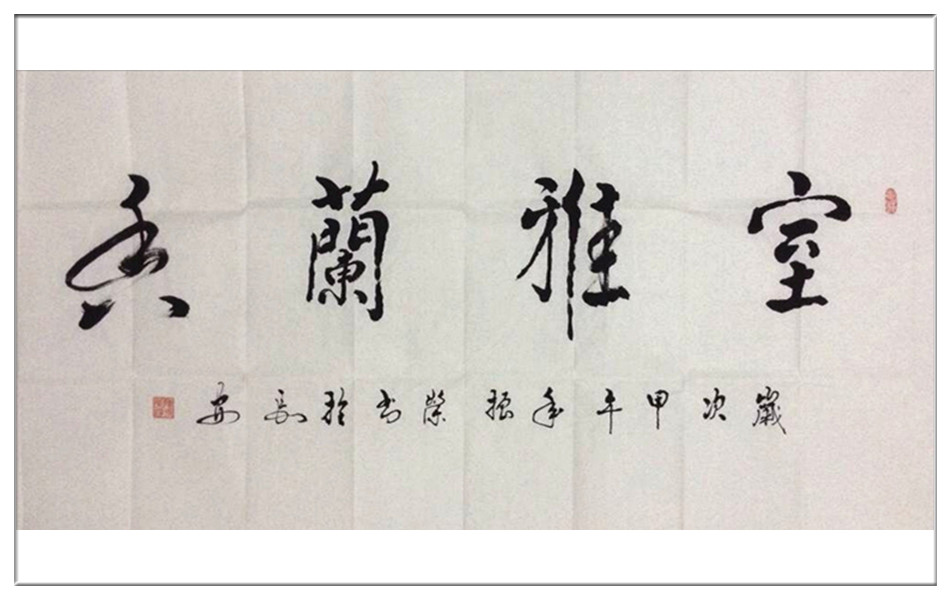 室雅蘭香
歲次甲午年振榮書於長安